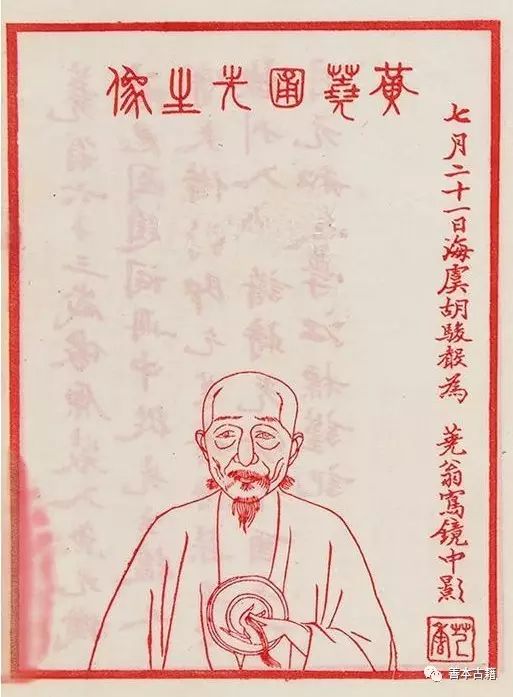 黃蕘圃先生像
七月二十一日海虞胡駿聲為 蕘翁寫鏡中影
芑香
善本古籍